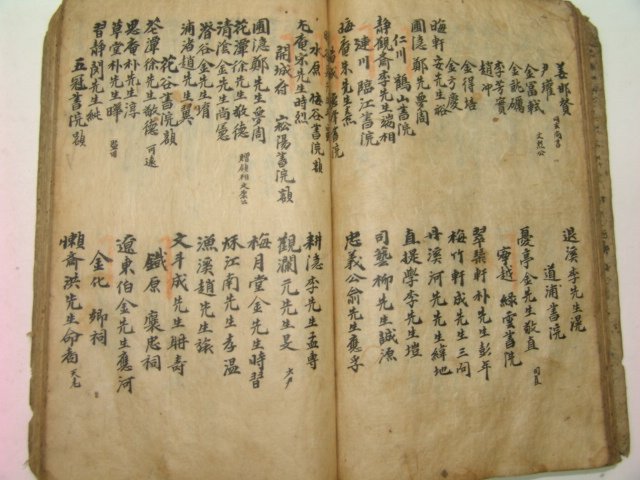 姜邯贊
尹瓘
金富軾
金就礪
李芳實
趙冲
金得培
金方慶
晦軒安先生裕
圃隱鄭先生夢周
仁川 鶴山書院
靜觀齋李先生端相
漣川 臨江書院
晦庵朱先生熹
退溪李先生滉
道浦書院
憂亭金先生敬直
寧越 綠雲書院
翠琹軒朴先生彭年
梅竹軒成先生三問
丹溪河先生緯地
直提學李先生塏
司藝柳先生誠源
忠義公俞先生應孚
水原 梅谷書院 額
尤庵宋先生時烈
開城府 崧陽書院 額
圃隱鄭先生夢周
花潭徐先生敬德 贈領相文康公
清陰金先生尚憲
潛谷金先生堉
浦渚趙先生翼
花谷書院 額
花潭徐先生敬德 可遠
思庵朴先生淳
草堂朴先生曄
習靜閔先生純
五冠書院 額
耕隱李先生孟專
觀瀾元先生昊
梅月堂金先生時習
秌江南先生孝溫
漁溪趙先生旅
文斗成先生聃壽
鐵原 褒忠祠
遼東伯金先生應河
金化 鄉祠
懶齋洪先生命耉